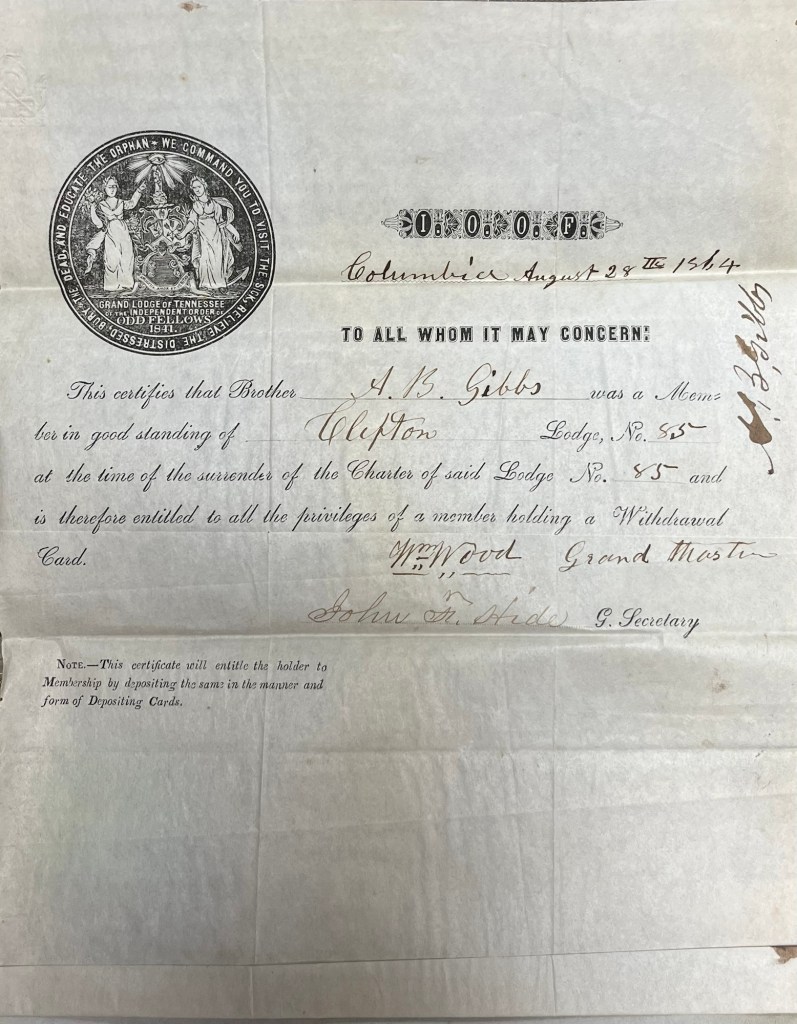 WE COMMAND YOU TO VISIT THE SICK, RELIEVE THE DISTRESSED, BURY THE DEAD, AND EDUCATE THE ORPHAN
GRAND LODGE OF TENNESSEE
OF THE INDEPENDENT ORDER OF
ODD FELLOWS
1841.
I. O. O. F.
Columbia August 28th 1864
TO ALL WHOM IT MAY CONCERN:
This certifies that Brother A. B. Gibbs was a Mem=
ber in good standing of Clifton Lodge, No. 85
at the time of the surrender of the Charter of said Lodge No. 85 and
is therefore entitled to all the privileges of a member holding a Withdrawal
Card. Wm Wood Grand Master
John F. Hide G. Secretary
NOTE.—This certificate will entitle the holder to
Membership by depositing the same in the manner and
form of Depositing Cards.
A. B. Gibbs